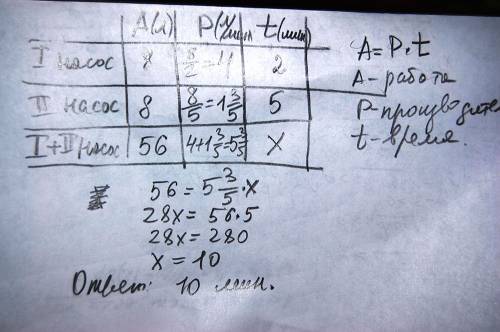 A(л) P(л/мин) t(мин)
I насос 8/2=4 2
II насос 8 8/5=1 3/5 5
I+II насос 56 4+1 3/5=5 3/5 X
56 = 5 3/5 · x
28x = 56·5
28x = 280
x = 10
Ответ: 10 мин.
A = P·t
A - работа
P - производите
t - время.